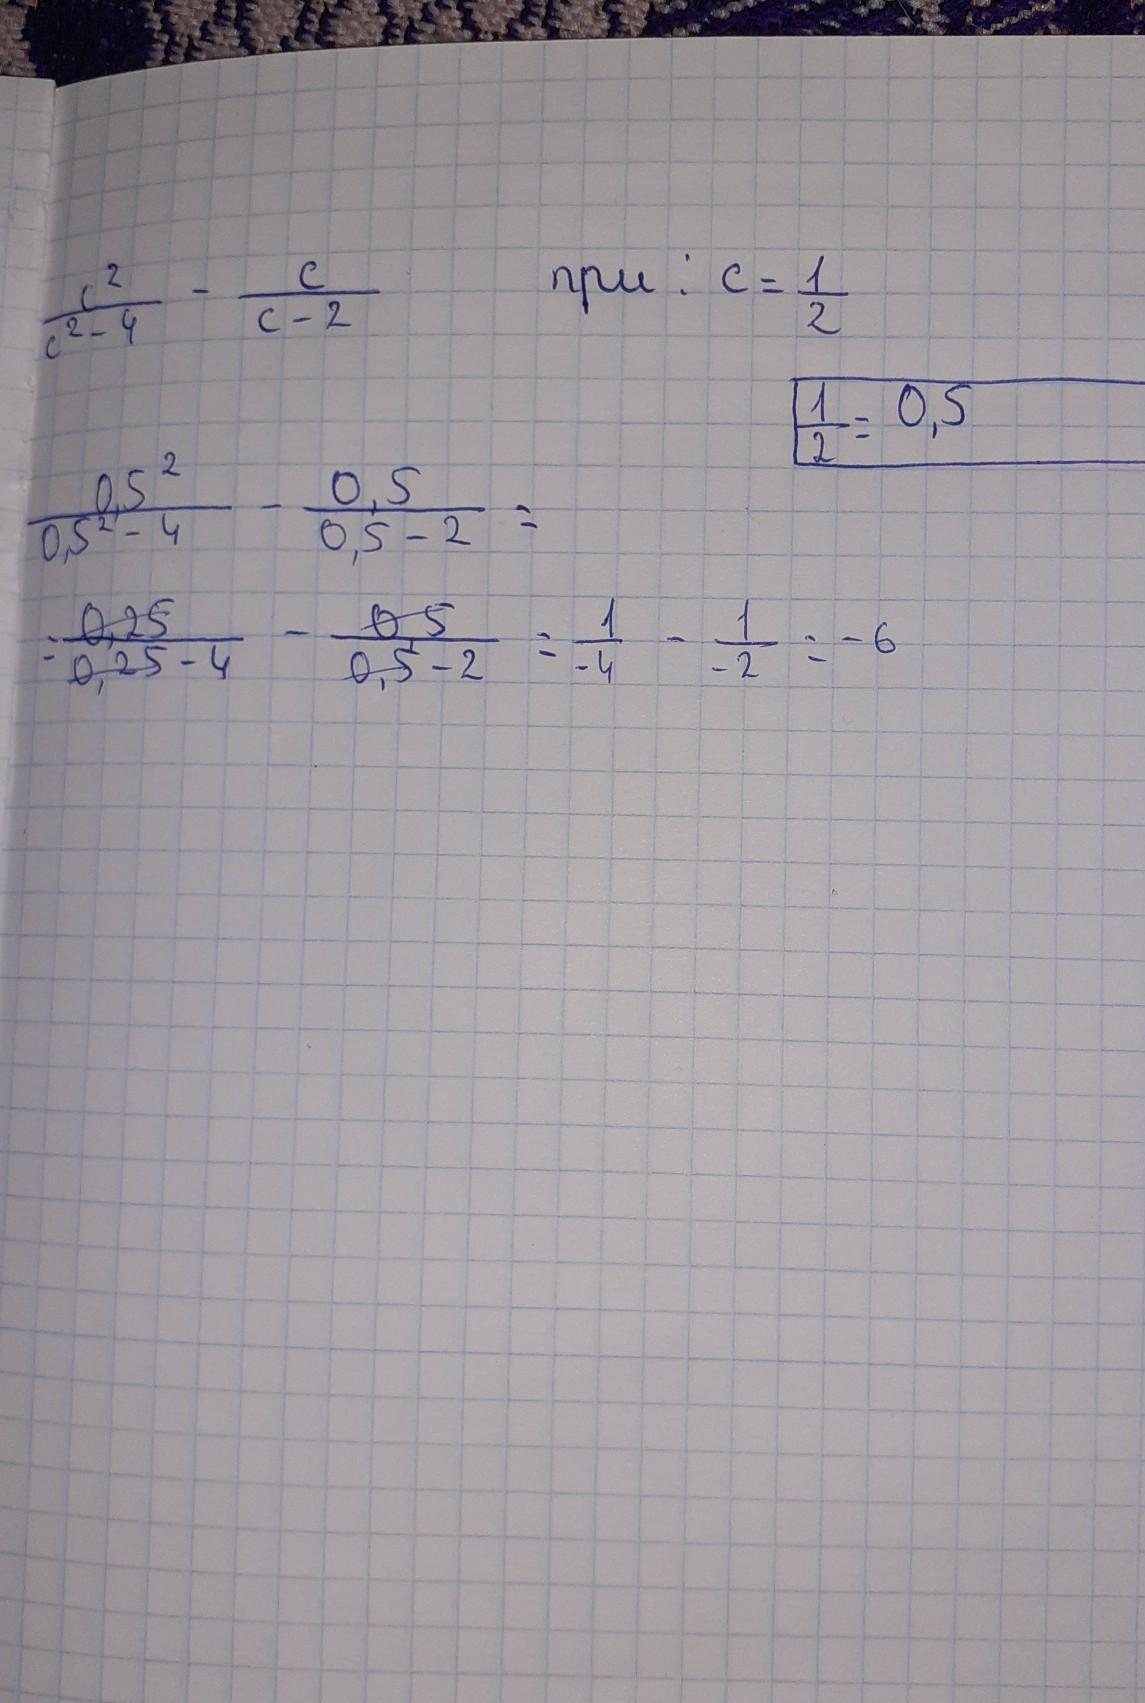 c²/(c²-4) - c/(c-2) при: c = 1/2
1/2 = 0,5
0,5²/(0,5²-4) - 0,5/(0,5-2) =
= 0,25/(0,25-4) - 0,5/(0,5-2) = 1/-4 - 1/-2 = -6